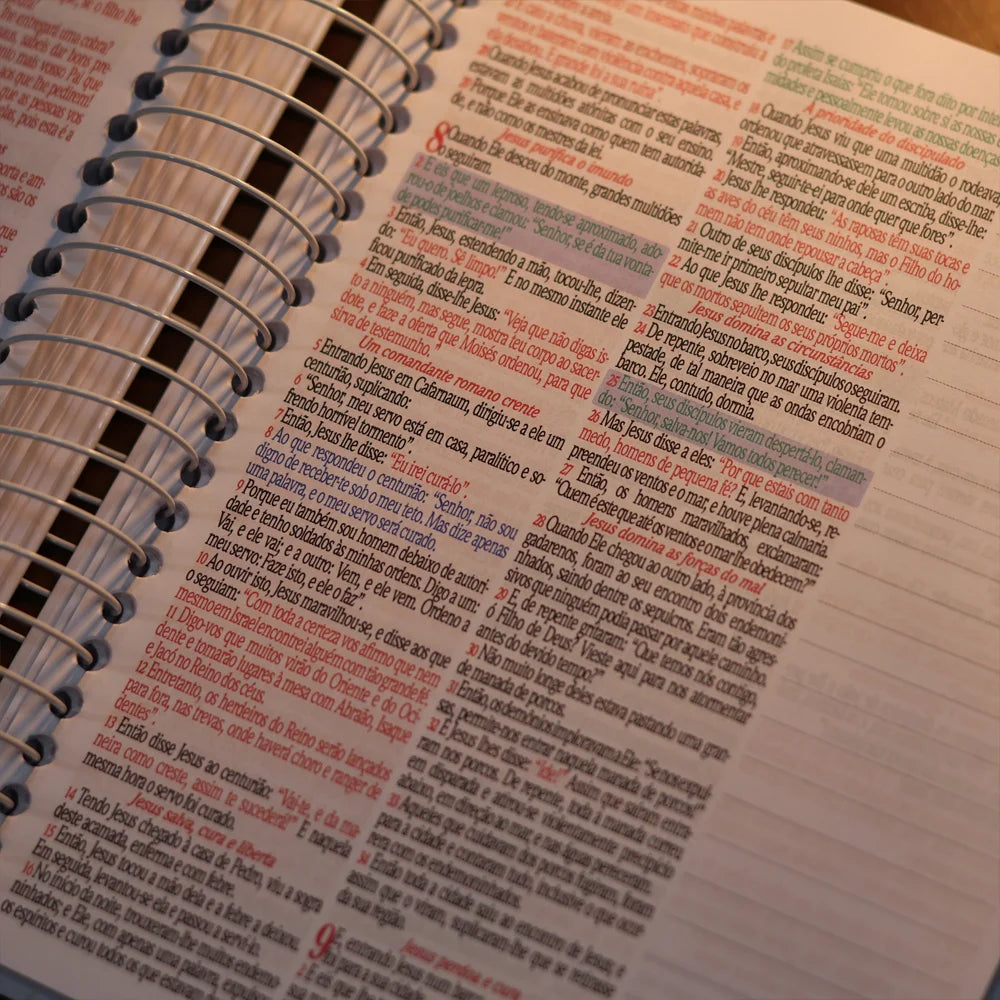 se o filho lhe
entregará uma cobra?
sabeis dar bons pre-
mais vosso Pai que
aos que lhe pedirem!
que as pessoas vos
pois esta é a
porta e am-
são os
que
e com violência contra aquela casa, e
ela desabou. E grande foi a sua ruína”.
28 Quando Jesus acabou de pronunciar estas palavras,
estavam as multidões atônitas com o seu ensino.
29 Porque Ele as ensinava como quem tem autorida-
de, e não como os mestres da lei.
Jesus purifica o imundo
8 Quando Ele desceu do monte, grandes multidões
o seguiram.
2 E eis que um leproso, tendo-se aproximado, ado-
rou-o de joelhos e clamou: “Senhor, se é da tua vonta-
de, podes purificar-me!”
3 Então, Jesus, estendendo a mão, tocou-lhe, dizen-
do: “Eu quero. Sê limpo!” E no mesmo instante ele
ficou purificado da lepra.
4 Em seguida, disse-lhe Jesus: “Veja que não digas is-
to a ninguém, mas segue, mostra teu corpo ao sacer-
dote, e faze a oferta que Moisés ordenou, para que
sirva de testemunho.
Um comandante romano crente
5 Entrando Jesus em Cafarnaum, dirigiu-se a ele um
centurião, suplicando:
6 “Senhor, meu servo está em casa, paralítico e so-
frendo horrível tormento”.
7 Então, Jesus lhe disse: “Eu irei curá-lo”.
8 Ao que respondeu o centurião: “Senhor, não sou
digno de receber-te sob o meu teto. Mas dize apenas
uma palavra, e o meu servo será curado.
9 Porque eu também sou homem debaixo de autori-
dade e tenho soldados às minhas ordens. Digo a um:
Vai, e ele vai; e a outro: Vem, e ele vem. Ordeno a
meu servo: Faze isto, e ele o faz”.
10 Ao ouvir isto, Jesus maravilhou-se, e disse aos que
o seguiam: “Com toda a certeza vos afirmo que nem
mesmo em Israel encontrei alguém com tão grande fé.
11 Digo-vos que muitos virão do Oriente e do Oci-
dente e tomarão lugares à mesa com Abraão, Isaque
e Jacó no Reino dos céus.
12 Entretanto, os herdeiros do Reino serão lançados
para fora, nas trevas, onde haverá choro e ranger de
dentes”.
13 Então disse Jesus ao centurião: “Vai-te, e da ma-
neira como creste, assim te sucederá!” E naquela
mesma hora o servo foi curado.
Jesus salva, cura e liberta
14 Tendo Jesus chegado à casa de Pedro, viu a sogra
deste acamada, enferma e com febre.
15 Então, Jesus tocou a mão dela e a febre a deixou.
Em seguida, levantou-se ela e passou a servi-lo.
16 No início da noite, trouxeram-lhe muitos endemo
ninhados; e Ele, com apenas uma palavra, expulsou
os espíritos e curou todos os que estavam
17 Assim se cumpriu o que fora dito por
do profeta Isaías: “Ele tomou sobre si as nossas
midades e pessoalmente levou as nossas doenças
A prioridade do discipulado
18 Quando Jesus viu que uma multidão o rodeava
ordenou que atravessassem para o outro lado do mar.
19 Então, aproximando-se dele um escriba, disse-lhe:
“Mestre, seguir-te-ei para onde quer que fores”.
20 Jesus lhe respondeu: “As raposas têm suas tocas e
as aves do céu têm seus ninhos, mas o Filho do ho-
mem não tem onde repousar a cabeça”.
21 Outro de seus discípulos lhe disse: “Senhor, per-
mite-me ir primeiro sepultar meu pai”.
22 Ao que Jesus lhe respondeu: “Segue-me e deixa
que os mortos sepultem os seus próprios mortos”.
Jesus domina as circunstâncias
23 Entrando Jesus no barco, seus discípulos o seguiram.
24 De repente, sobreveio no mar uma violenta tem-
pestade, de tal maneira que as ondas encobriam o
barco. Ele, contudo, dormia.
25 Então, seus discípulos vieram despertá-lo, claman-
do: “Senhor, salva-nos! Vamos todos perecer!”
26 Mas Jesus disse a eles: “Por que estais com tanto
medo, homens de pequena fé? E, levantando-se, re-
preendeu os ventos e o mar, e houve plena calmaria.
27 Então, os homens maravilhados, exclamaram:
“Quem é este que até os ventos e o mar lhe obedecem?”
Jesus domina as forças do mal
28 Quando Ele chegou ao outro lado, à província dos
gadarenos, foram ao seu encontro dois endemoni-
nhados, saindo dentre os sepulcros. Eram tão agres-
sivos que ninguém podia passar por aquele caminho.
29 E, de repente gritaram: “Que temos nós contigo,
ó Filho de Deus? Vieste aqui para nos atormentar
antes do devido tempo?”
30 Não muito longe deles estava pastando uma gran-
de manada de porcos.
31 Então, os demônios imploravam a Ele: “Se nos expul-
sas, permite-nos entrar naquela manada de porcos”.
32 E Jesus lhes disse: “Ide!” Assim que saíram, entra-
ram nos porcos. De repente, toda a manada correu
em disparada e atirou-se violentamente, precipício
abaixo, em direção ao mar, e nas águas pereceram.
33 Aqueles que cuidavam dos porcos fugiram, foram
para a cidade e contaram tudo, inclusive o que ocor-
rera com os endemoninhados.
34 Então toda a cidade saiu ao encontro de Jesus, e
assim que o viram, suplicaram-lhe que se retirasse
da sua região.
Jesus perdoa e cura
9 E, entrando Jesus num barco,
foi para a sua cidade.
2 E eis que